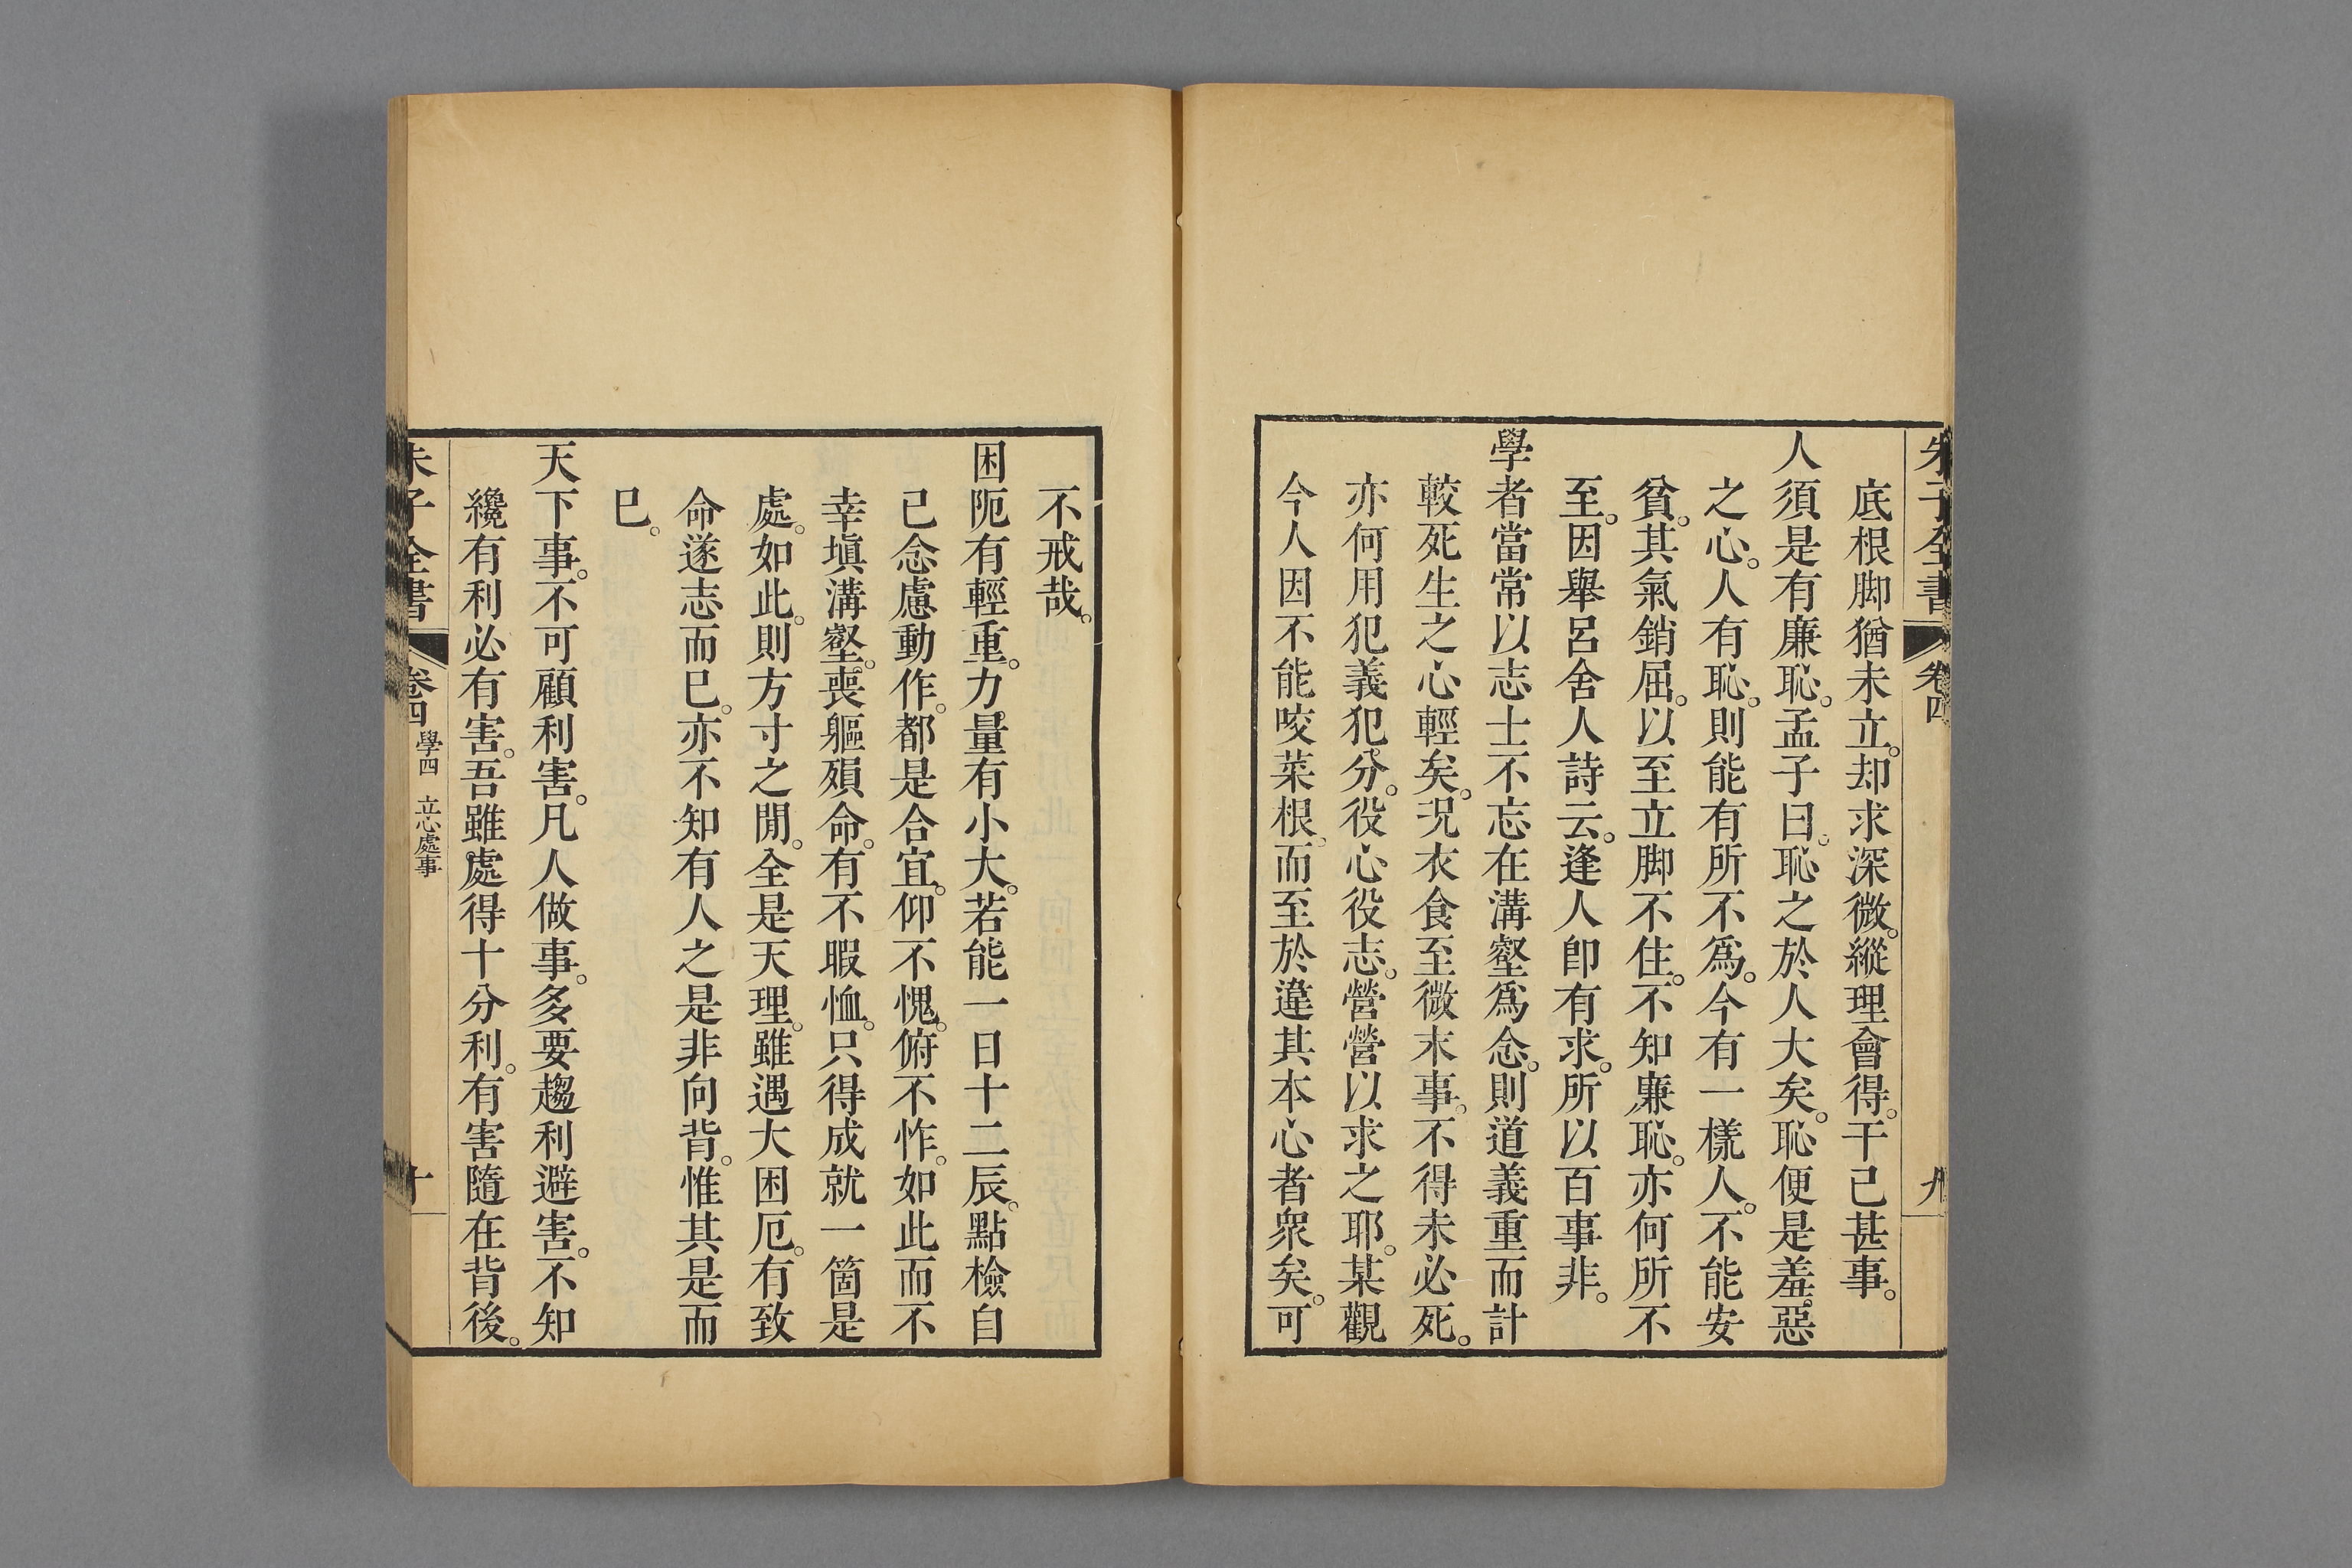 朱子全書 卷四 九
底根脚猶未立。却求深微。縱理會得。干己甚事。
人須是有廉恥。孟子曰。恥之於人大矣。恥便是羞惡
之心。人有恥。則能有所不爲。今有一樣人。不能安
貧。其氣銷屈。以至立脚不住。不知廉恥。亦何所不
至。因舉呂舍人詩云。逢人卽有求。所以百事非。
學者當常以志士不忘在溝壑爲念。則道義重而計
較死生之心輕矣。況衣食至微末事。不得未必死。
亦何用犯義犯分。役心役志。營營以求之耶。某觀
今人因不能咬菜根。而至於違其本心者衆矣。可
不戒哉。
困阨有輕重。力量有小大。若能一日十二辰。點檢自
己念慮動作。都是合宜。仰不愧。俯不怍。如此而不
幸塡溝壑。喪軀殞命。有不暇恤。只得成就一箇是
處。如此。則方寸之閒。全是天理。雖遇大困厄。有致
命遂志而已。亦不知有人之是非向背。惟其是而
已。
天下事。不可顧利害。凡人做事。多要趨利避害。不知
纔有利必有害。吾雖處得十分利。有害隨在背後。
朱子全書 卷四 學四 立心處事 十